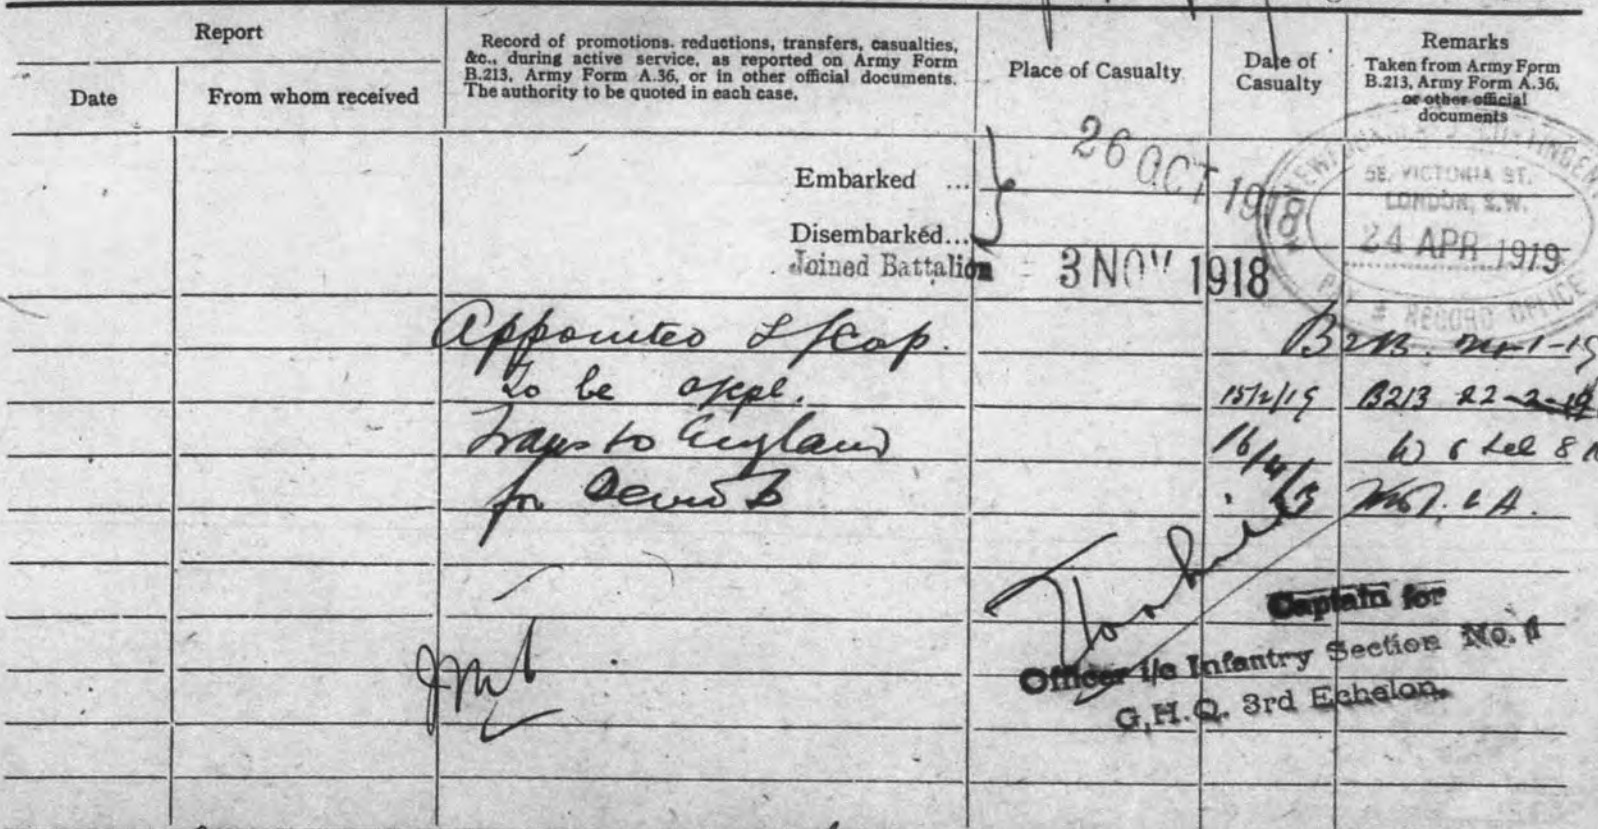 Report
Date
From whom received
Record of promotions, reductions, transfers, casualties,
&c., during active service, as reported on Army Form
B.213, Army Form A.36, or in other official documents.
The authority to be quoted in each case.
Place of Casualty
Date of
Casualty
Remarks
Taken from Army Form
B.213, Army Form A.36,
or other official
documents
Embarked ...
26 OCT 1918
Disembarked...
Joined Battalion
3 NOV 1918
58, VICTORIA ST.
LONDON, S.W.
24 APR 1919
RECORD OFFICE
Appointed L/Cop.
To be a/cpl.
15/2/19 B213 22-2-19
Trans to England
for
Captain for
Officer i/c Infantry Section No. 1
G.H.Q. 3rd Echelon.